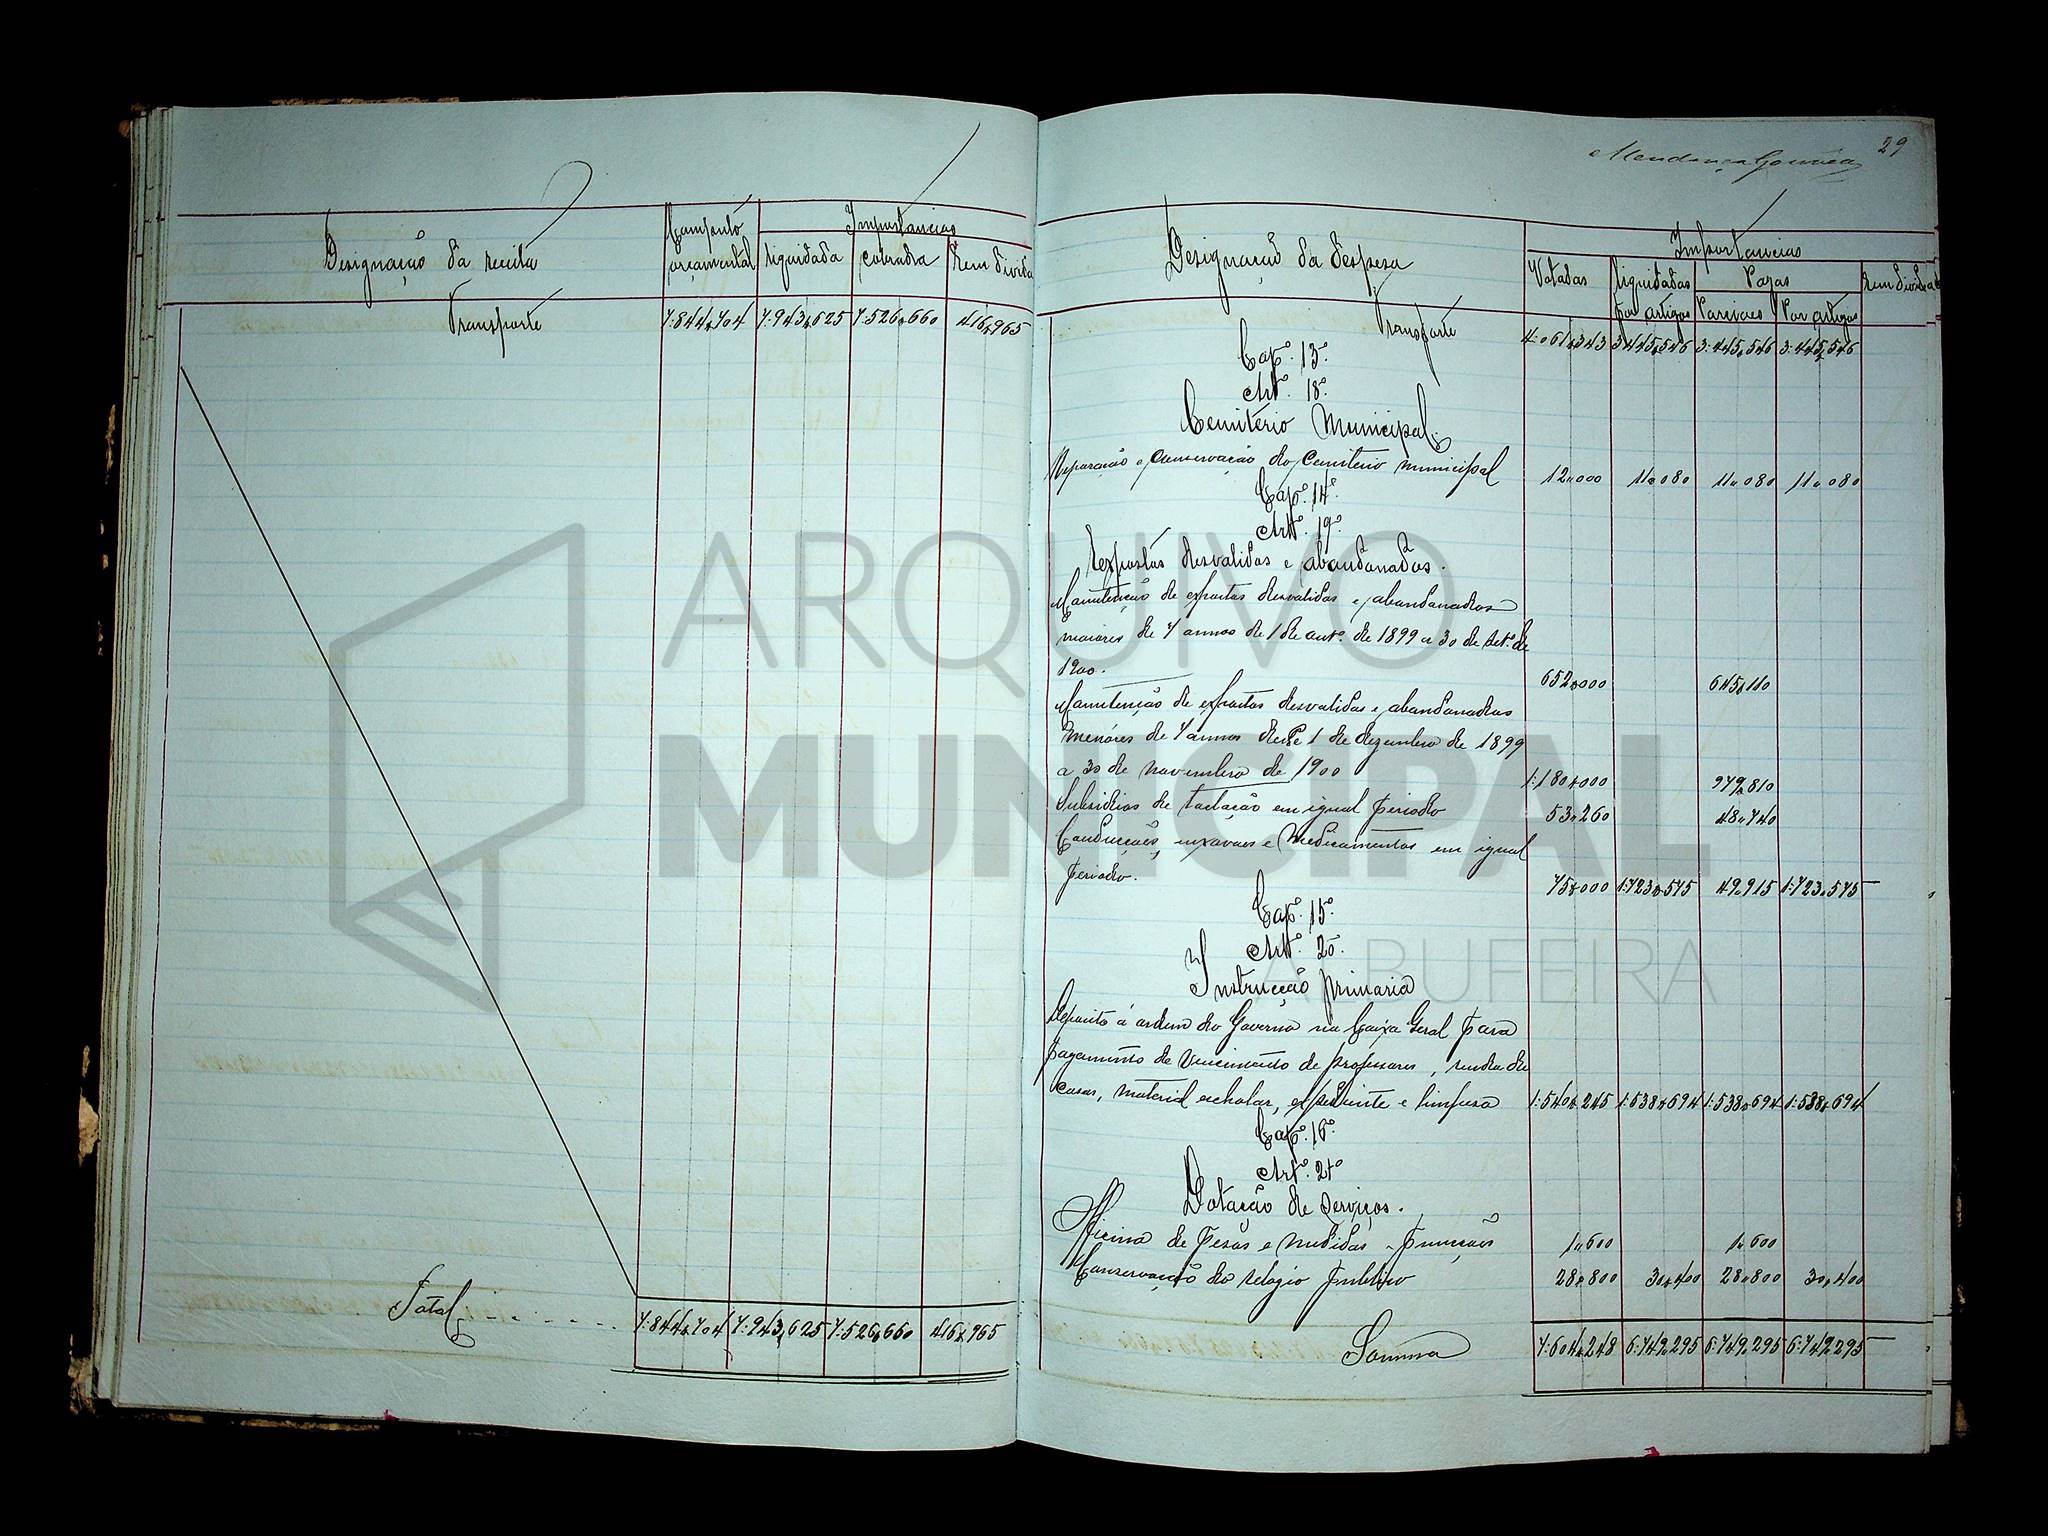 Designação da receita
Computo orçamental
Importancias
liquidada
cobrada
em divida
Transporte 7:844,704 7:943,625 7:526,660 416,965
Total 7:844,704 7:943,625 7:526,660 416,965
Mendonça Gouvêa 29
Designação da despesa
Importancias
Votadas
liquidadas por artigos
Pagas
Parciaes
Por artigos
em divida
Transporte 4:061,343 3:445,546 3:445,546 3:445,546
Cap.º 13º
Artº. 18º
Cemiterio Municipal.
Reparação e conservação do Cemiterio municipal 12,000 11,080 11,080 11,080
Cap.º 14º
Artº. 19º
Expostos desvalidos e abandonados.
Manutenção de expostos desvalidos e abandonados
maiores de 7 annos de 1 de outº. de 1899 a 30 de setº. de
1900. 652,000 645,110
Manutenção de expostos desvalidos e abandonados
menores de 7 annos desde 1 de dezembro de 1899
a 30 de novembro de 1900 1:180,000 979,810
Subsidios de lactação em igual periodo 53,260 48,740
Conducções, enxovaes e medicamentos em igual
periodo. 75,000 1:723,575 49,915 1:723,575
Cap.º 15º
Artº. 20º
Instrucção primaria
Deposito á ordem do Governo na Caixa Geral para
pagamento de vencimento de professores, renda de
casas, material escholar, expediente e limpesa 1:540,245 1:538,694 1:538,694 1:538,694
Cap.º 16º
Artº. 21º
Dotação de serviços.
Officina de pesos e medidas - funcções 1,600 1,600
Conservação do relogio publico 28,800 30,400 28,800 30,400
Somma 7:604,248 6:749,295 6:749,295 6:749,295
ARQUIVO
MUNICIPAL
ALBUFEIRA